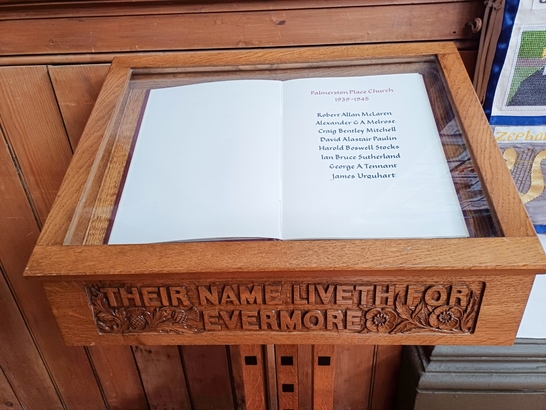 Palmerston Place Church
1939-1945
Robert Allan McLaren
Alexander G A Melrose
Craig Bentley Mitchell
David Alastair Paulin
Harold Boswell Stocks
Ian Bruce Sutherland
George A Tennant
James Urquhart
THEIR NAME LIVETH FOR
EVERMORE